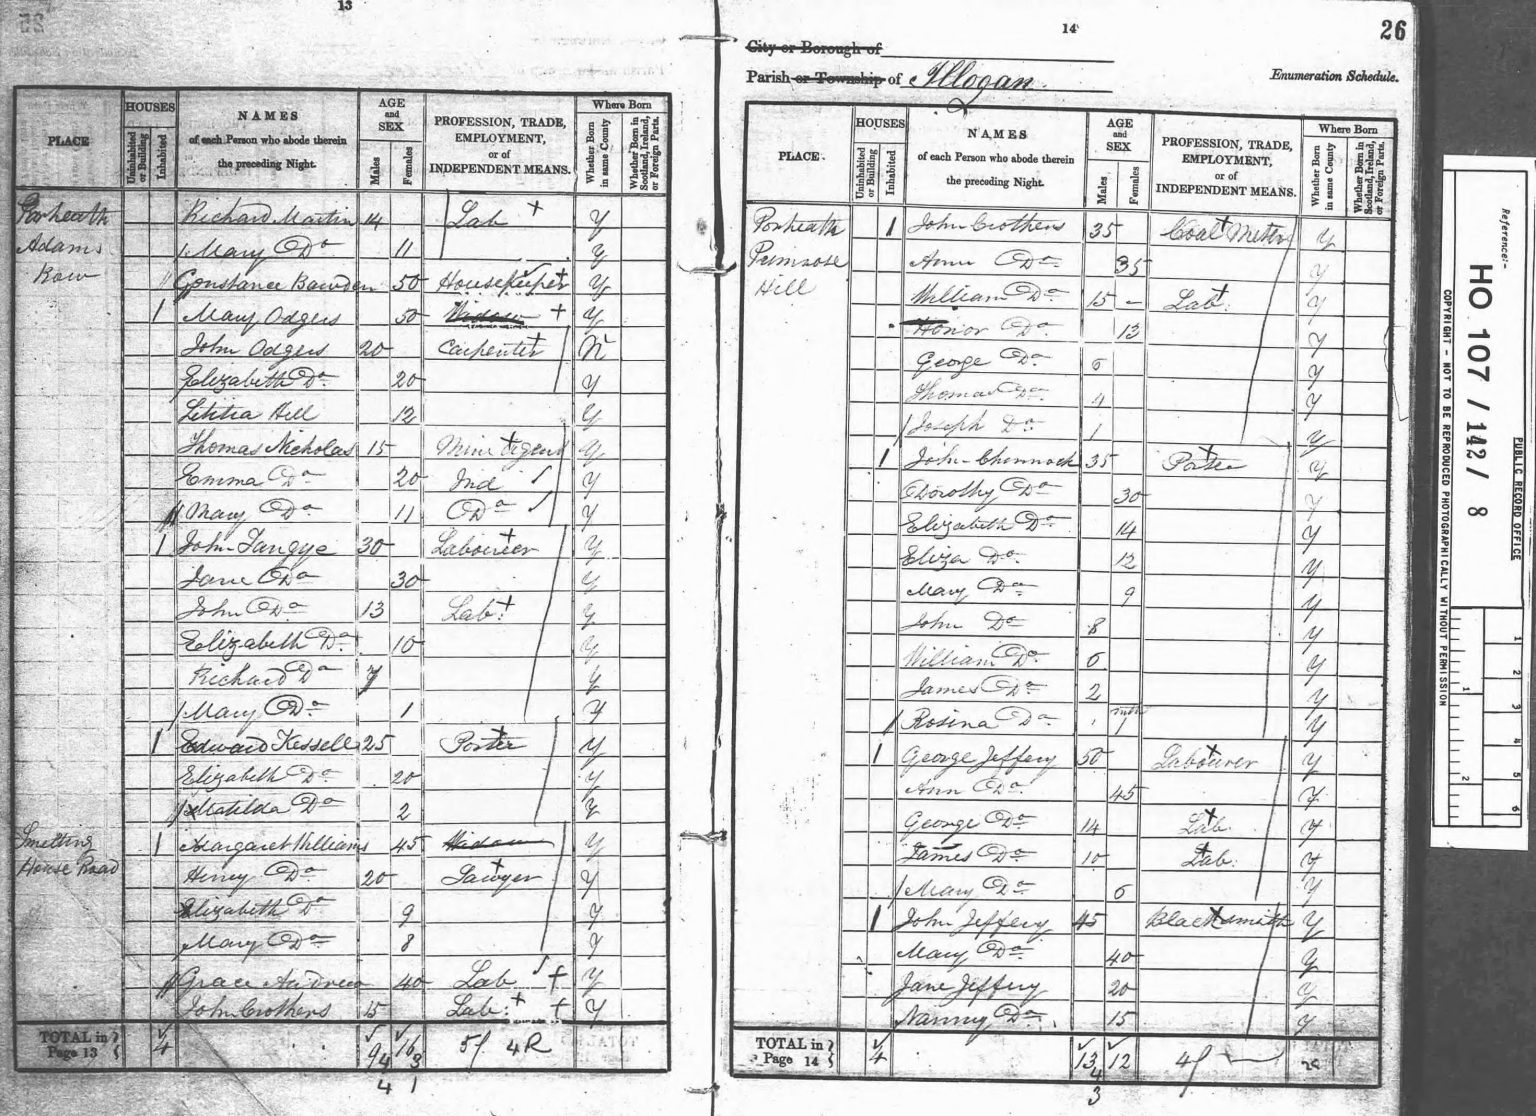 13
PLACE
HOUSES
Uninhabited or Building
Inhabited
NAMES
of each Person who abode therein
the preceding Night.
AGE and SEX
Males
Females
PROFESSION, TRADE,
EMPLOYMENT,
or of
INDEPENDENT MEANS.
Where Born
Whether Born in same County
Whether Born in Scotland, Ireland, or Foreign Parts.
Porheath Richard Martin 14 Lab Y
Adams Mary Do 11 Y
Row Constance Bawden 50 Housekeeper Y
1 Mary Odgers 50 Widow Y
John Odgers 20 Carpenter N
Elizabeth Do 20 Y
Letitia Hill 12 Y
Thomas Nicholas 15 Mine Agent Y
Emma Do 20 Ind Y
Mary Do 11 Do Y
1 John Tangye 30 Labourer Y
Jane Do 30 Y
John Do 13 Lab Y
Elizabeth Do 10 Y
Richard Do 7 Y
Mary Do 1 Y
1 Edward Kessell 25 Porter Y
Elizabeth Do 20 Y
Matilda Do 2 Y
Smelting 1 Margaret Williams 45 Widow Y
House Road Henry Do 20 Sawyer Y
Elizabeth Do 9 Y
Mary Do 8 Y
Grace Andrew 40 Lab Y
John Crothers 15 Lab: Y
TOTAL in Page 13 4 9 16 5f 4R
4 3
4 1
14
26
City or Borough of
Parish or Township of Illogan
Enumeration Schedule.
PLACE
HOUSES
Uninhabited or Building
Inhabited
NAMES
of each Person who abode therein
the preceding Night.
AGE and SEX
Males
Females
PROFESSION, TRADE,
EMPLOYMENT,
or of
INDEPENDENT MEANS.
Where Born
Whether Born in same County
Whether Born in Scotland, Ireland, or Foreign Parts.
Porheath 1 John Crothers 35 Coal Meter Y
Primrose Ann Do 35 Y
Hill William Do 15 Lab Y
Honor Do 13 Y
George Do 6 Y
Thomas Do 4 Y
Joseph Do 1 Y
1 John Chennock 35 Porter Y
Dorothy Do 30 Y
Elizabeth Do 14 Y
Eliza Do 12 Y
Mary Do 9 Y
John Do 8 Y
William Do 6 Y
James Do 2 Y
Rosina Do mth 1 Y
1 George Jeffery 50 Labourer Y
Ann Do 45 Y
George Do 14 Lab Y
James Do 10 Lab: Y
Mary Do 6 Y
1 John Jeffery 45 Blacksmith Y
Mary Do 40 Y
Jane Jeffery 20 Y
Nanny Do 15 Y
TOTAL in Page 14 4 13 12 4f
4
3
Reference:-
HO 107 / 142 / 8
PUBLIC RECORD OFFICE
COPYRIGHT - NOT TO BE REPRODUCED PHOTOGRAPHICALLY WITHOUT PERMISSION
1 2 3 4 5 6
1 2